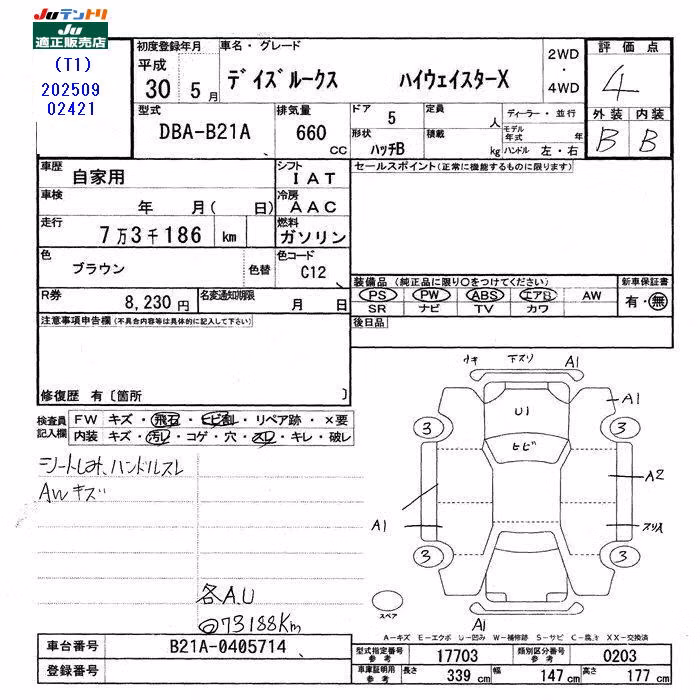 Juテントリ
Ju
適正販売店
(T1)
202509
02421
初度登録年月
平成
30 5 月
車名・グレード
デイズルークス ハイウェイスターX
2WD
・
4WD
評価点
4
外装 内装
B B
型式
DBA-B21A
排気量
660 CC
ドア 5
形状 ハッチB
定員 人
積載 kg
ディーラー・並行
モデル年式 年
ハンドル 左・右
車歴 自家用
シフト IAT
車検 年 月( 日)
冷房 AAC
走行 7万3千186 km
燃料 ガソリン
色 ブラウン 色替
色コード C12
R券 8,230 円
名変通知期限 月 日
セールスポイント(正常に機能するものに限ります)
装備品 (純正品に限り○をつけてください)
新車保証書
PS PW ABS エアB AW
有・無
SR ナビ TV カワ
後日品
注意事項申告欄(不具合内容等は具体的に記入して下さい)
修復歴 有〔箇所 〕
検査員記入欄
FW キズ・飛石・ヒビ割・リペア跡・×要
内装 キズ・汚レ・コゲ・穴・スレ・キレ・破レ
シートしみ、ハンドルスレ
AWキズ
各A.U
73188Km
ウキ 下スリ A1
A1
U1
3 3
ヒビ
A2
A1
スリA
3 3
スペア
A1
A-キズ E-エクボ U-凹み W-補修跡 S-サビ C-腐食 XX-交換済
車台番号 B21A-0405714
登録番号
型式指定番号 参考 17703
類別区分番号 参考 0203
車庫証明用 参考 長さ 339 cm 幅 147 cm 高さ 177 cm